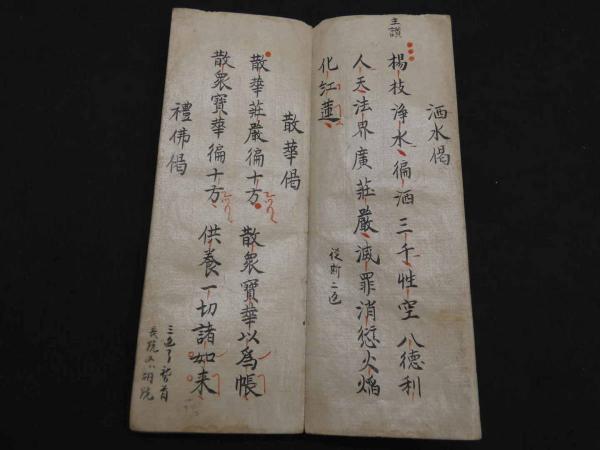 洒水偈
主讃
楊枝浄水徧洒三千性空八徳利
人天法界廣荘厳滅罪消愆火焔
化紅蓮
散華偈
散華荘厳徧十方散衆寶華以爲帳
散衆寶華徧十方供養一切諸如来
禮佛偈